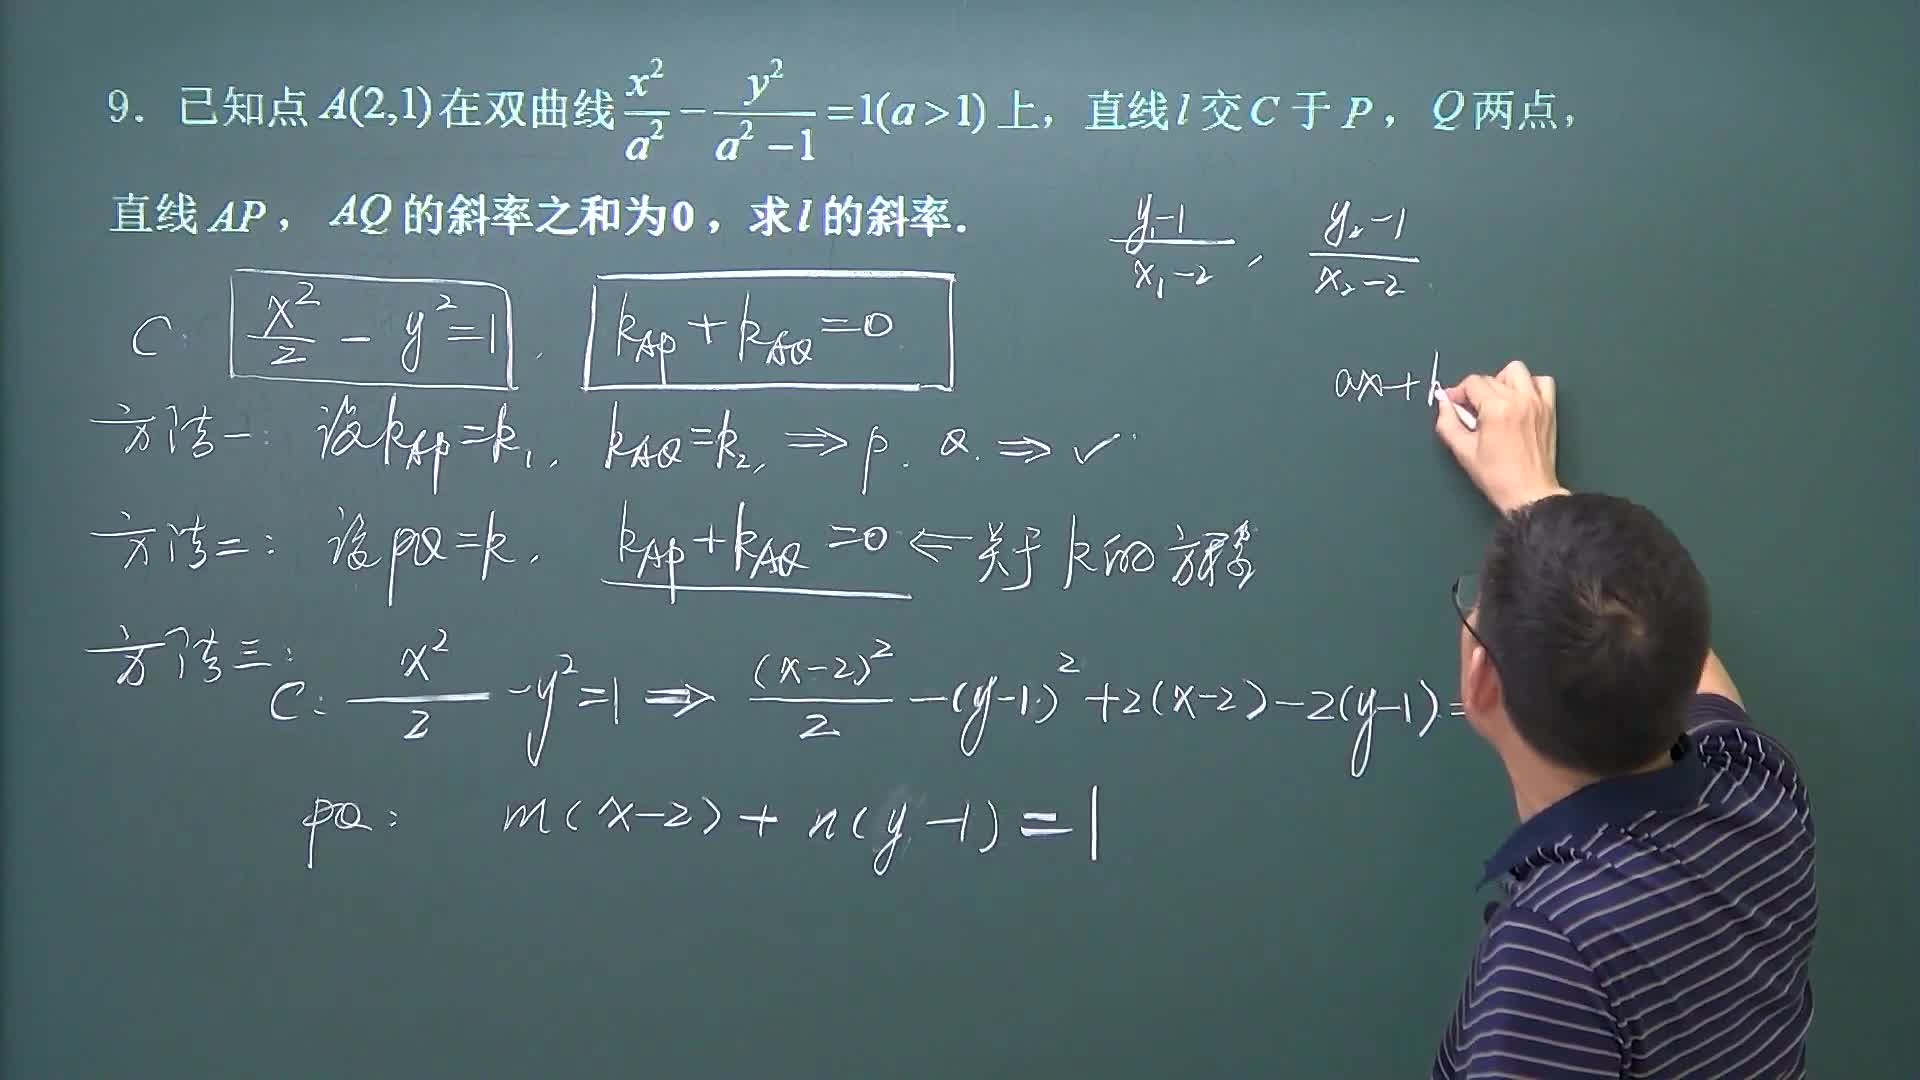 9. 已知点 A(2,1) 在双曲线 x²/a² - y²/(a²-1) = 1(a>1) 上，直线 l 交 C 于 P，Q 两点，
直线 AP，AQ 的斜率之和为0，求 l 的斜率.
(y₁-1)/(x₁-2), (y₂-1)/(x₂-2).
C: x²/2 - y² = 1, k_AP + k_AQ = 0
ax+
方法一: 设k_AP=k₁, k_AQ=k₂, ⇒ P. Q. ⇒ ✓
方法二: 设PQ=k, k_AP+k_AQ=0 ← 关于k的方程
方法三:
C: x²/2 - y² = 1 ⇒ (x-2)²/2 - (y-1)² + 2(x-2) - 2(y-1) =
PQ: m(x-2) + n(y-1) = 1